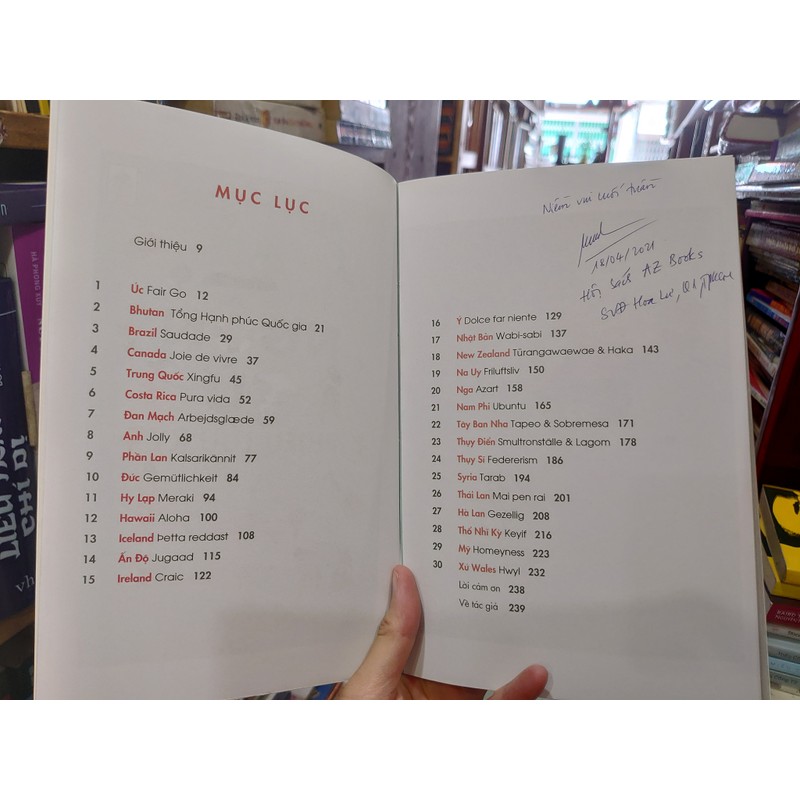 MỤC LỤC
Giới thiệu 9
1 Úc Fair Go 12
2 Bhutan Tổng Hạnh phúc Quốc gia 21
3 Brazil Saudade 29
4 Canada Joie de vivre 37
5 Trung Quốc Xingfu 45
6 Costa Rica Pura vida 52
7 Đan Mạch Arbejdsglæde 59
8 Anh Jolly 68
9 Phần Lan Kalsarikännit 77
10 Đức Gemütlichkeit 84
11 Hy Lạp Meraki 94
12 Hawaii Aloha 100
13 Iceland Þetta reddast 108
14 Ấn Độ Jugaad 115
15 Ireland Craic 122
Niềm vui cuối tuần
18/04/2021
Hội Sách AZ Books
SVĐ Hoa Lư, Q1, TPHCM
16 Ý Dolce far niente 129
17 Nhật Bản Wabi-sabi 137
18 New Zealand Tūrangawaewae & Haka 143
19 Na Uy Friluftsliv 150
20 Nga Azart 158
21 Nam Phi Ubuntu 165
22 Tây Ban Nha Tapeo & Sobremesa 171
23 Thụy Điển Smultronställe & Lagom 178
24 Thụy Sĩ Federerism 186
25 Syria Tarab 194
26 Thái Lan Mai pen rai 201
27 Hà Lan Gezellig 208
28 Thổ Nhĩ Kỳ Keyif 216
29 Mỹ Homeyness 223
30 Xứ Wales Hwyl 232
Lời cảm ơn 238
Về tác giả 239
HÀ PHONG XUY